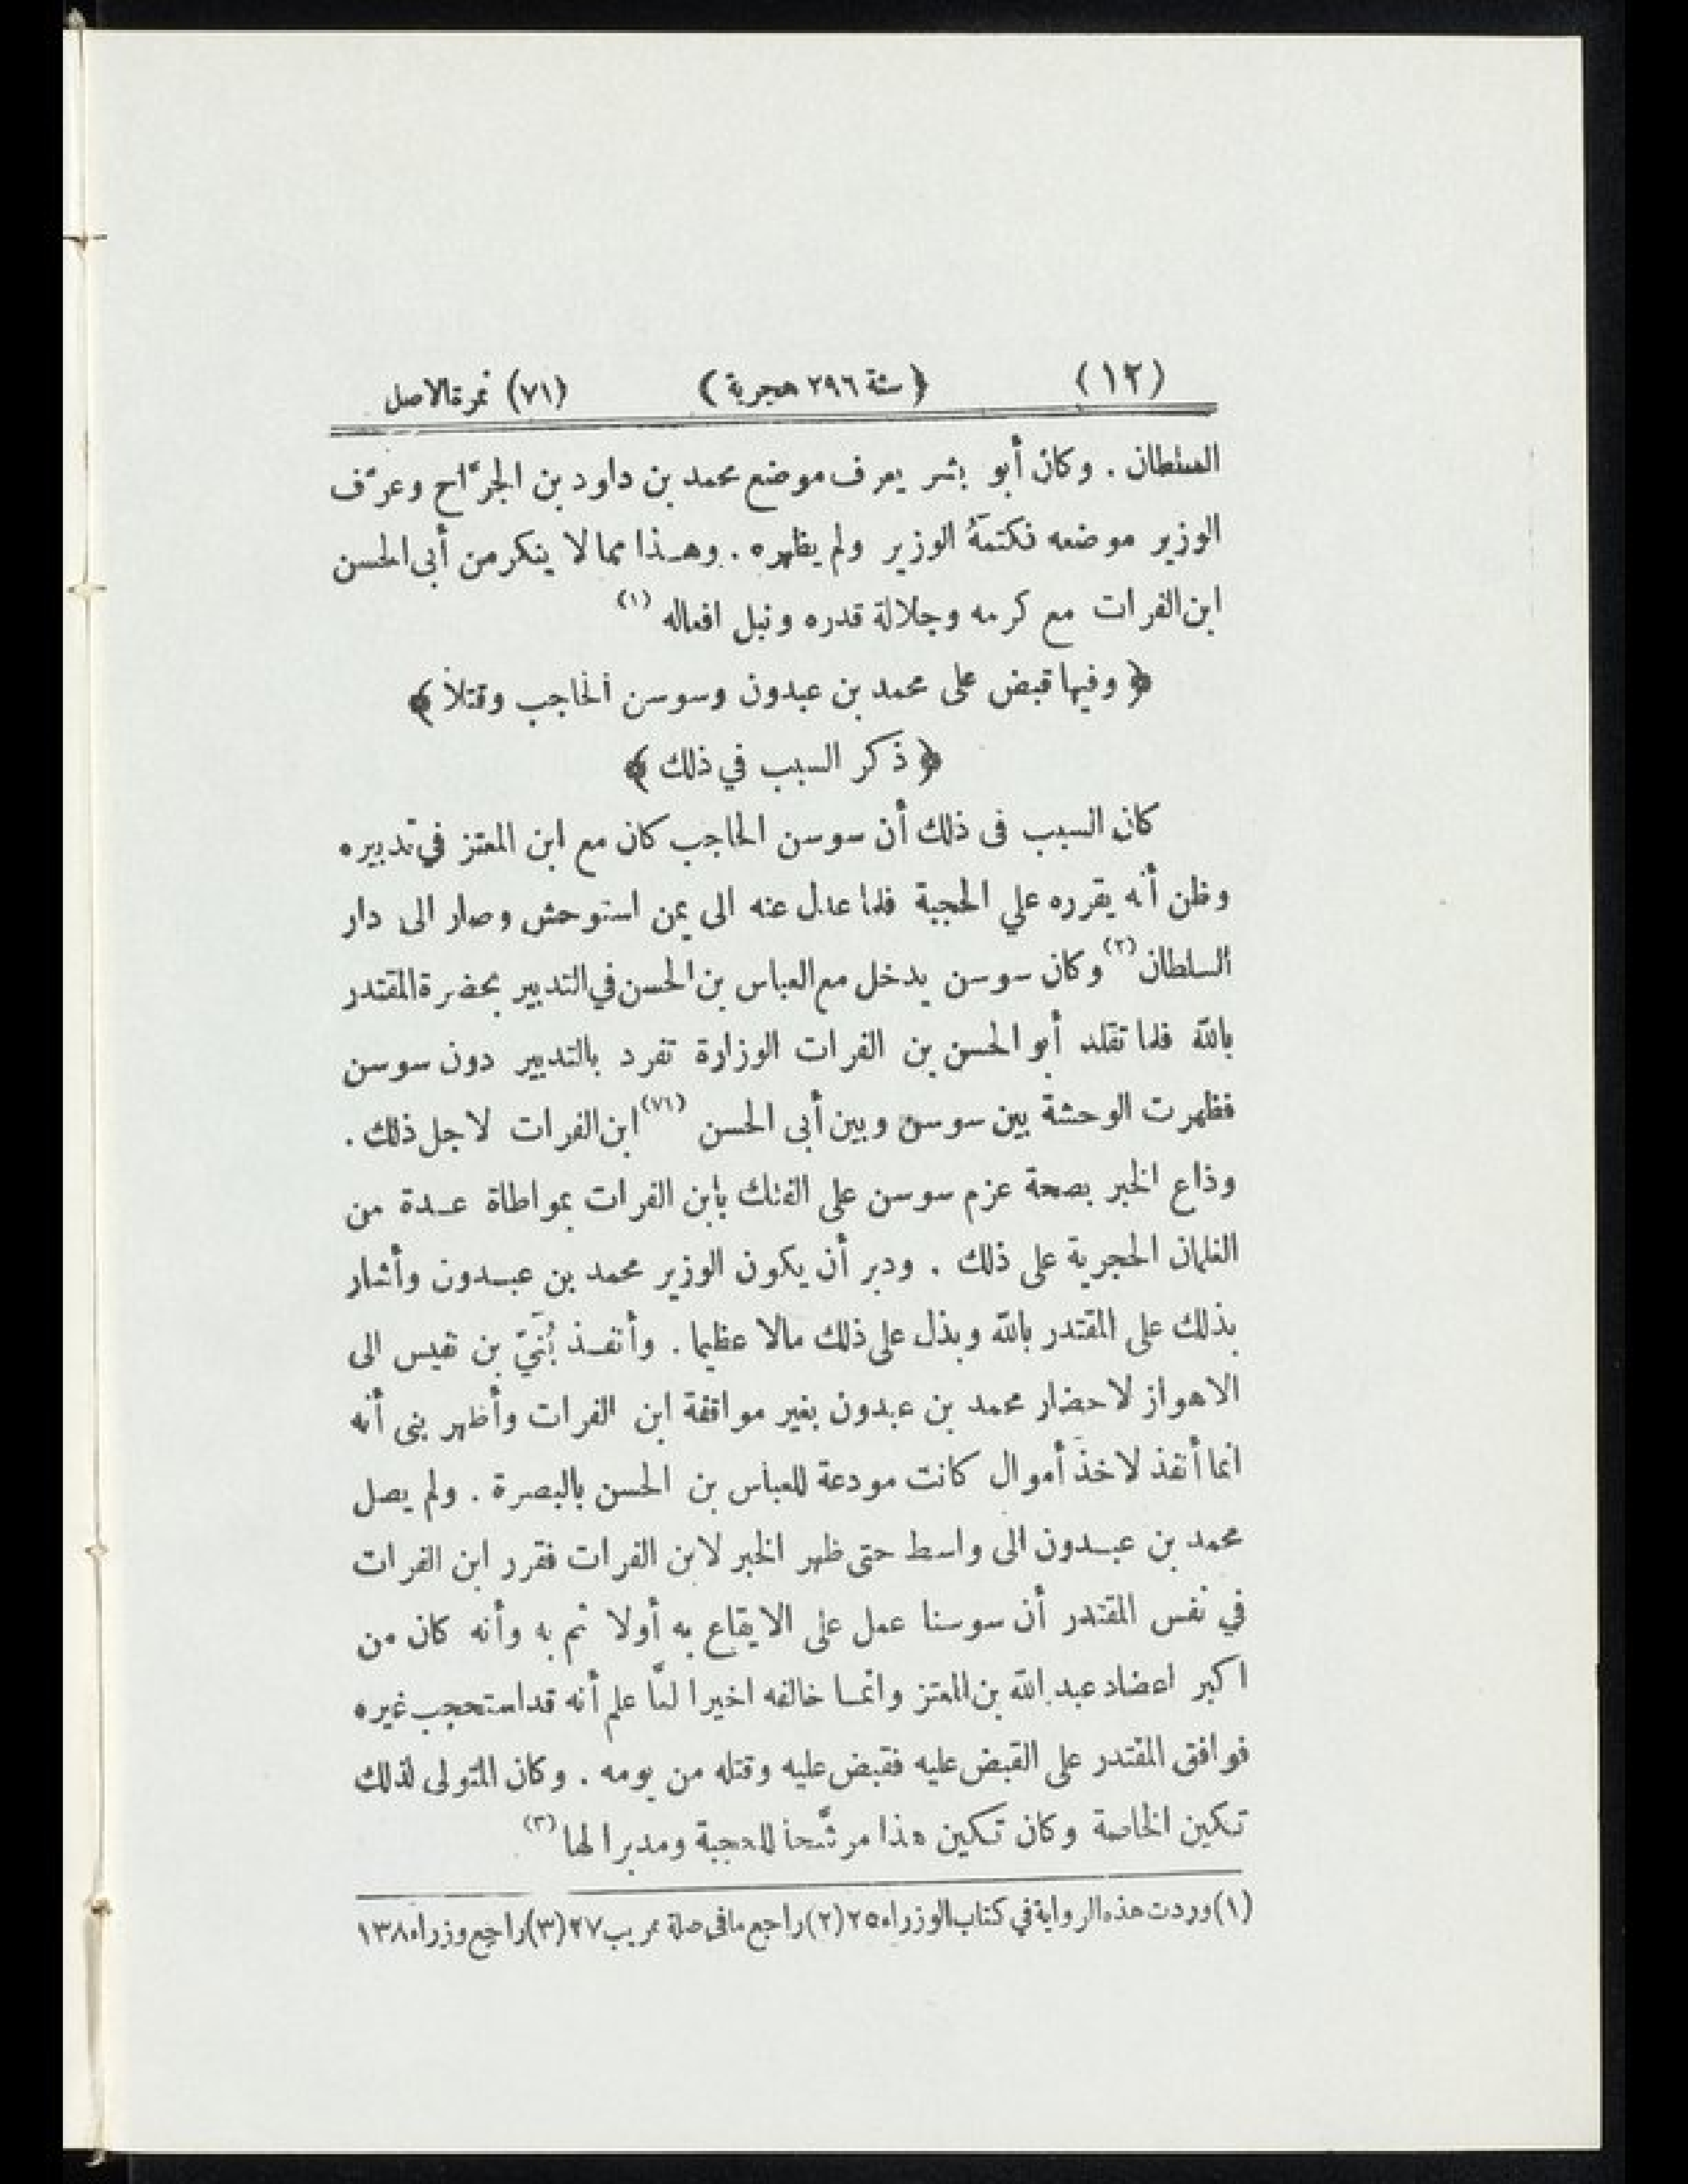 (١٢) ﴿ سنة ٢٩٦ هجرية ﴾ (٧١) نمرة الاصل
السلطان . وكان أبو بشر يعرف موضع محمد بن داود بن الجرّاح وعرّف
الوزير موضعه فكتمهُ الوزير ولم يظهره . وهـذا مما لا ينكر من أبى الحسن
ابن الفرات مع كرمه وجلالة قدره ونبل افعاله (١)
﴿ وفيها قبض على محمد بن عبدون وسوسن الحاجب وقتلا ﴾
﴿ ذكر السبب في ذلك ﴾
كان السبب فى ذلك أن سوسن الحاجب كان مع ابن المعتز في تدبيره
وظن أنه يقرره علي الحجبة فلما عدل عنه الى يمن استوحش وصار الى دار
السلطان (٢) وكان سوسن يدخل مع العباس بن الحسن في التدبير بحضرة المقتدر
بالله فلما تقلد أبو الحسن بن الفرات الوزارة تفرد بالتدبير دون سوسن
فظهرت الوحشة بين سوسن وبين أبى الحسن (٧١) ابن الفرات لاجل ذلك .
وذاع الخبر بصحة عزم سوسن على الفتك بابن الفرات بمواطاة عـدة من
الغلمان الحجرية على ذلك . ودبر أن يكون الوزير محمد بن عبـدون وأشار
بذلك على المقتدر بالله وبذل على ذلك مالا عظيما . وأنفـذ بُنَيّ بن نفيس الى
الاهواز لاحضار محمد بن عبدون بغير موافقة ابن الفرات وأظهر بنى أنه
انما أنفذ لاخذ أموال كانت مودعة للعباس بن الحسن بالبصرة . ولم يصل
محمد بن عبـدون الى واسط حتى ظهر الخبر لابن الفرات فقرر ابن الفرات
في نفس المقتدر أن سوسنا عمل على الايقاع به أولا ثم به وأنه كان من
اكبر اعضاد عبد الله بن المعتز وانمـا خالفه اخيرا لمّا علم أنه قد استحجب غيره
فوافق المقتدر على القبض عليه فقبض عليه وقتله من يومه . وكان المتولى لذلك
تكين الخاصة وكان تكين هذا مرشّحا للحجبة ومدبرا لها (٣)
(١) وردت هذه الرواية في كتاب الوزراء ٢٥ (٢) راجع ما فى صلة عريب ٢٧ (٣) راجع وزراء ١٣٨